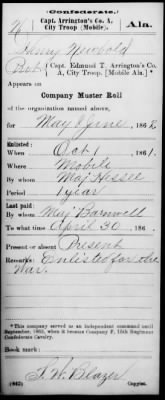 (Confederate.)
N Capt. Arrington's Co. A, Ala.
City Troop (Mobile).
Henry Newbold
Pvt., Capt. Edmund T. Arrington's Co.
A, City Troop, [Mobile Ala.]
Appears on
Company Muster Roll
of the organization named above,
for May & June, 1862
Enlisted:
When Oct 1, 1861.
Where Mobile
By whom Maj Hessee
Period 1 year
Last paid:
By whom Maj Barnwell
To what time April 30, 186
Present or absent Present
Remarks: Enlisted for the
War.
*This company served as an independent command until
September, 1863, when it became Company F, 15th Regiment
Confederate Cavalry.
Book mark:
S. W. Blazer
(642) Copyist.